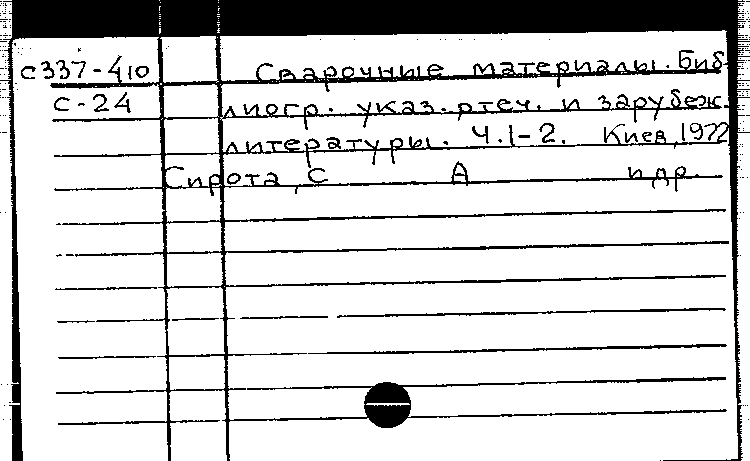 с337-410 Сварочные материалы. Биб-
с-24 лиогр. указ. отеч. и зарубеж.
литературы. Ч.1-2. Киев, 1972
Сирота, С А и др.